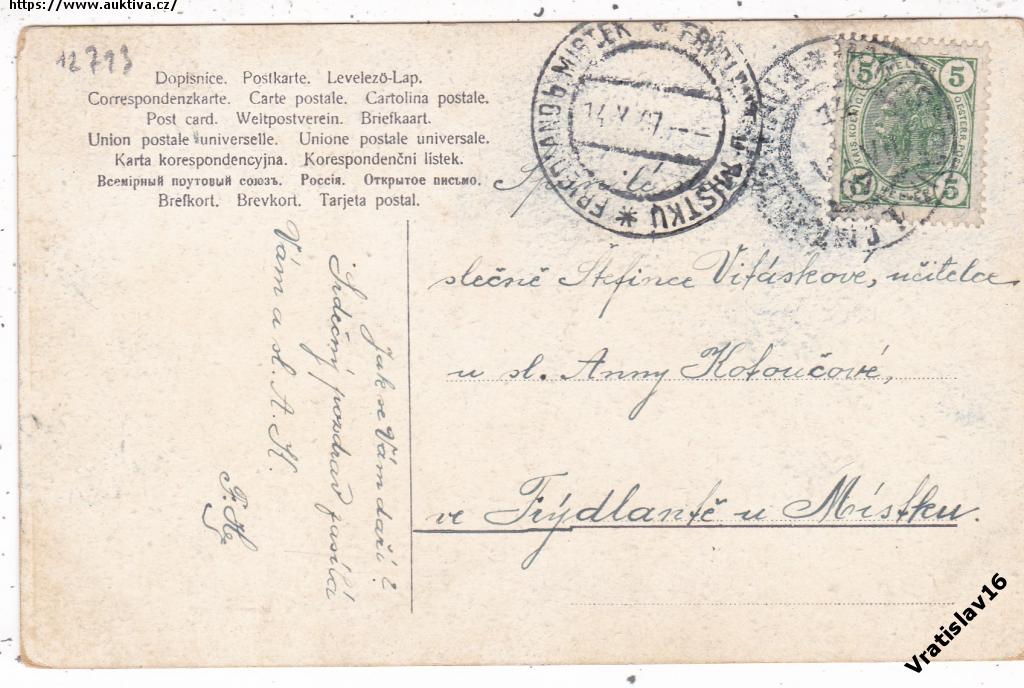 https://www.auktiva.cz/
12793
Dopisnice. Postkarte. Levelező-Lap.
Correspondenzkarte. Carte postale. Cartolina postale.
Post card. Weltpostverein. Briefkaart.
Union postale universelle. Unione postale universale.
Karta korespondencyjna. Korespondenční lístek.
Всемірный почтовый союзъ. Россія. Открытое письмо.
Brefkort. Brevkort. Tarjeta postal.
FRIEDLAND b MISTEK * FRÝDLANT u MÍSTKU *
14 V 07
5 HELLER 5
KAIS. KOENIGL. OESTERR. POST
5 HELLER 5
slečně Štefince Vitáskové, učitelce
u sl. Anny Kotoučové,
ve Frýdlantě u Místku.
Jak se Vám daří?
Srdečný pozdrav zasílá
Vám a sl. A. K.
Vratislav16